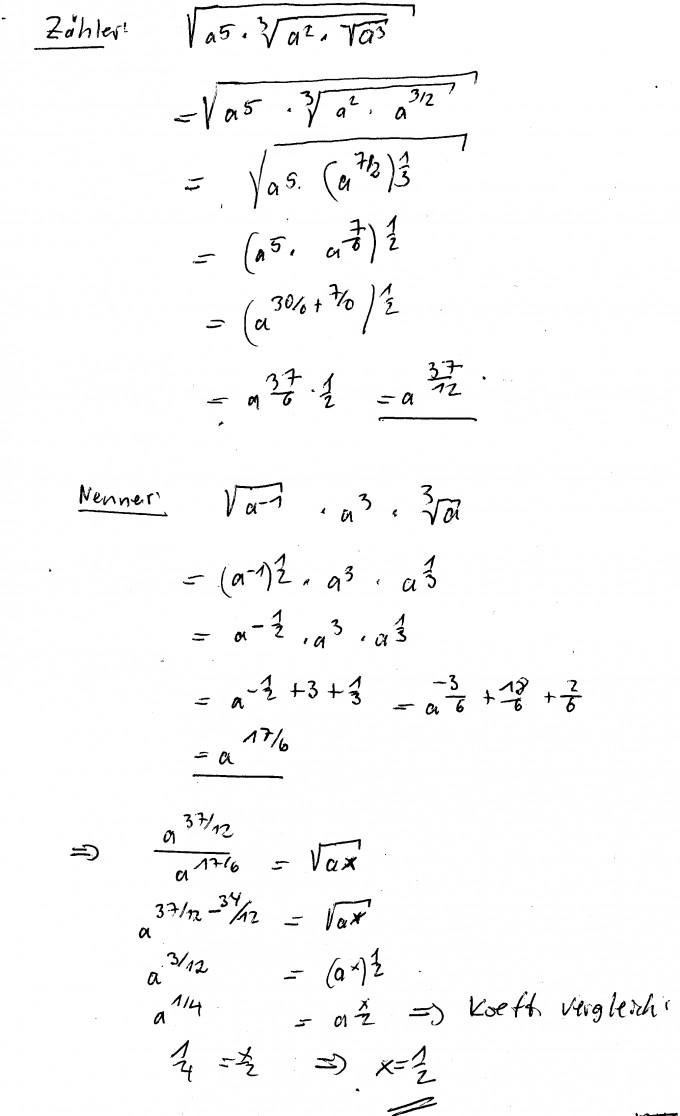 Zähler: √(a⁵ · ∛(a² · √(a³)))
= √(a⁵ · ∛(a² · a^(3/2)))
= √(a⁵ · (a^(7/2))^(1/3))
= (a⁵ · a^(7/6))^(1/2)
= (a^(30/6 + 7/6))^(1/2)
= a^(37/6 · 1/2) = a^(37/12)
Nenner: √(a⁻¹) · a³ · ∛a
= (a⁻¹)^(1/2) · a³ · a^(1/3)
= a^(-1/2) · a³ · a^(1/3)
= a^(-1/2 + 3 + 1/3) = a^(-3/6 + 18/6 + 2/6)
= a^(17/6)
⇒ a^(37/12) / a^(17/6) = √(a^x)
a^(37/12 - 34/12) = √(a^x)
a^(3/12) = (a^x)^(1/2)
a^(1/4) = a^(x/2) ⇒ Koeff. vergleich:
1/4 = x/2 ⇒ x = 1/2